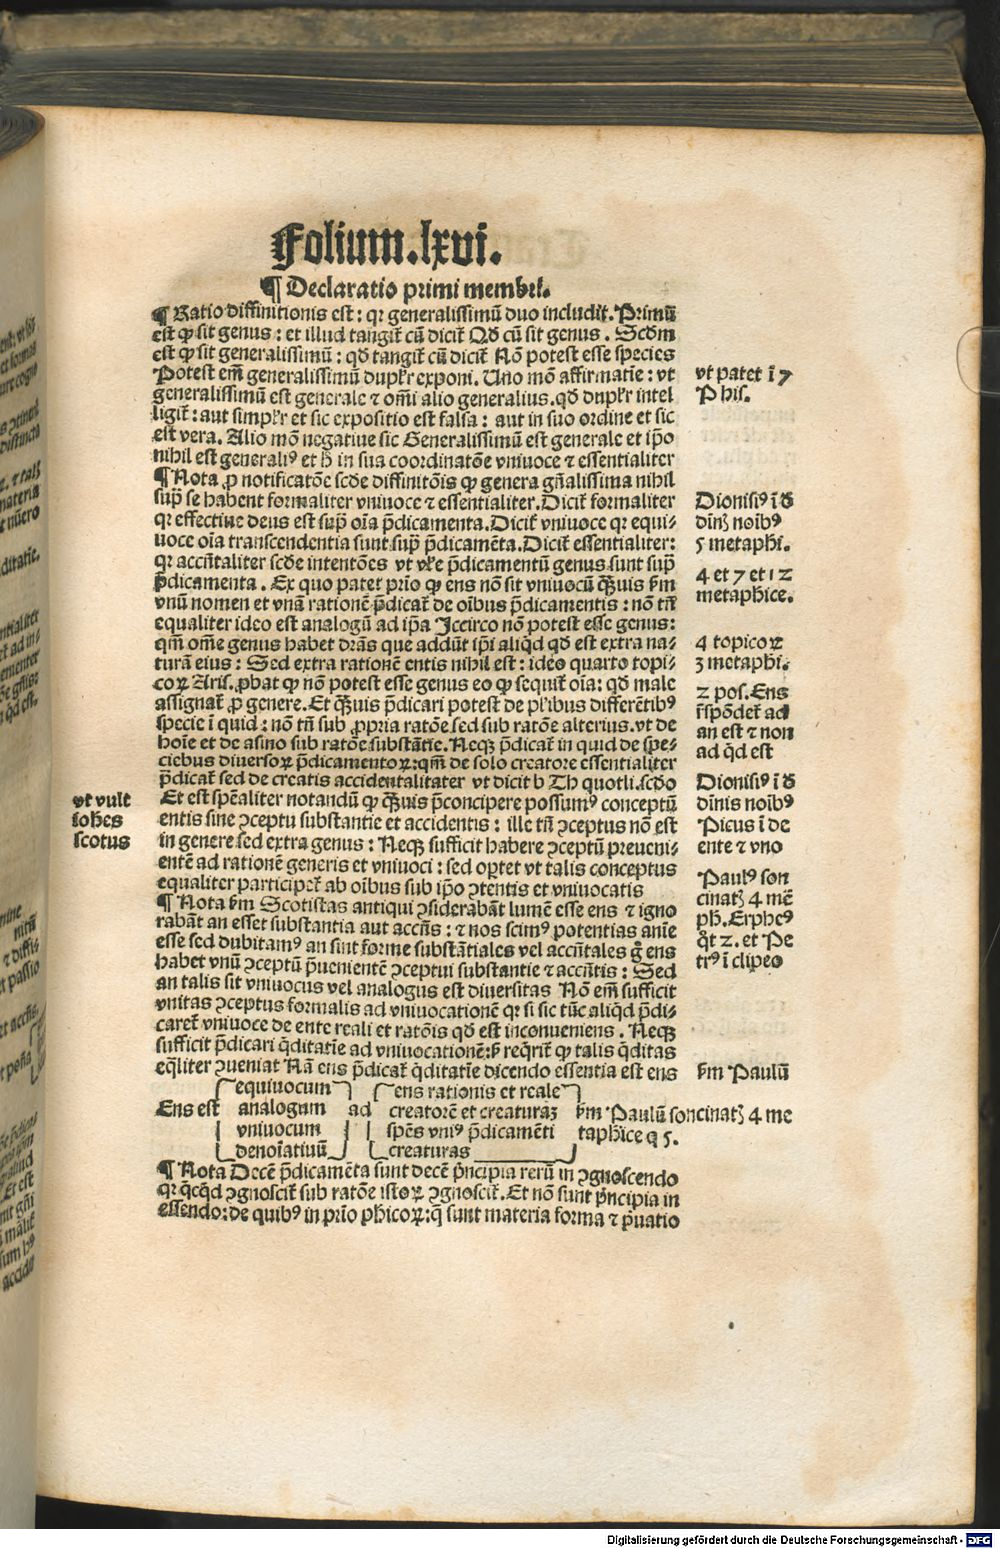 Folium.lxvi.
¶ Declaratio primi membri.
¶ Ratio diffinitionis est: qꝛ generalissimū duo includit̄. Primū
est ꝙ sit genus: et illud tangit̄ cū dicit̄ Qđ cū sit genus. Scđm
est ꝙ sit generalissimū: qđ tangit̄ cū dicit̄ Nō potest esse species
Potest em̄ generalissimū duplr̄ exponi. Uno mō affirmatīe: vt
generalissimū est generale ⁊ om̄i alio generalius. qđ duplr̄ intel
ligit̄: aut simplr̄ et sic expositio est falsa: aut in suo ordine et sic
est vera. Alio mō negatiue sic Generalissimū est generale et ip̄o
nihil est generaliꝰ et ħ in sua coordinatōe vniuoce ⁊ essentialiter
¶ Nota ꝓ notificatōe scđe diffinitōis ꝙ genera gn̄alissima nihil
sup̄ se habent formaliter vniuoce ⁊ essentialiter. Dicit̄ formaliter
qꝛ effectiue deus est sup̄ oīa p̄dicamenta. Dicit̄ vniuoce qꝛ equi-
uoce oīa transcendentia sunt sup̄ p̄dicamēta. Dicit̄ essentialiter:
qꝛ accn̄taliter scđe intentōes vt vl̄e p̄dicamentū genus sunt sup̄
p̄dicamenta. Ex quo patet prīo ꝙ ens nō sit vniuocū qꝫuis ẜm
vnū nomen et vnā rationē p̄dicat̄ de oībus p̄dicamentis: nō tn̄
equaliter ideo est analogū ad ip̄a Iccirco nō potest esse genus:
qm̄ om̄e genus habet dr̄as que addūt ip̄i aliqđ qđ est extra na-
turā eius: Sed extra rationē entis nihil est: ideo quarto topi-
coꝝ Aris. ꝓbat ꝙ nō potest esse genus eo ꝙ sequit̄ oīa: qđ male
assignat̄ ꝓ genere. Et qꝫuis p̄dicari potest de pl̄ibus differētibꝰ
specie ī quid: nō tn̄ sub ꝓpria ratōe sed sub ratōe alterius. vt de
hoīe et de asino sub ratōe substātie. Neqꝫ p̄dicat̄ in quid de spe-
ciebus diuersoꝝ p̄dicamentoꝝ: qm̄ de solo creatore essentialiter
p̄dicat̄ sed de creatis accidentalitater vt dicit b Th quotli. scđo
Et est spēaliter notandū ꝙ qꝫuis p̄concipere possumꝰ conceptū
entis sine ꝯceptu substantie et accidentis: ille tn̄ ꝯceptus nō est
in genere sed extra genus: Neqꝫ sufficit habere ꝯceptū preueni-
entē ad rationē generis et vniuoci: sed oꝑtet vt talis conceptus
equaliter participet̄ ab oībus sub ip̄o ꝯtentis et vniuocatis
¶ Nota ẜm Scotistas antiqui ꝯsiderabāt lumē esse ens ⁊ igno
rabāt an esset substantia aut accn̄s: ⁊ nos scimꝰ potentias anīe
esse sed dubitamꝰ an sint forme substātiales vel accn̄tales g̊ ens
habet vnū ꝯceptū p̄uenientē ꝯceptui substantie ⁊ accn̄tis: Sed
an talis sit vniuocus vel analogus est diuersitas Nō em̄ sufficit
vnitas ꝯceptus formalis ad vniuocationē qꝛ si sic tūc aliqđ p̄di-
caret̄ vniuoce de ente reali et ratōis qđ est inconueniens. Neqꝫ
sufficit p̄dicari q̄ditatīe ad vniuocationē: ẜ req̄rit̄ ꝙ talis q̄ditas
eq̄liter ꝯueniat Nā ens p̄dicat̄ q̄ditatīe dicendo essentia est ens
Ens est
equiuocum
analogum
vniuocum
denoīatiuū
ad
ens rationis et reale
creatorē et creaturaꝫ
spēs vniꝰ p̄dicamēti
creaturas
ẜm Paulū soncinatꝫ 4 me
taphīce q 5.
¶ Nota Decē p̄dicamēta sunt decē p̄ncipia rerū in ꝯgnoscendo
qꝛ qcq̄d ꝯgnoscit̄ sub ratōe istoꝝ ꝯgnoscit̄. Et nō sunt p̄ncipia in
essendo: de quibꝰ in prīo phīcoꝝ: q̄ sunt materia forma ⁊ p̄uatio
vt patet ī 7
Phis.
Dionisiꝰ ī đ
dīnꝫ noībꝰ
5 metaphī.
4 et 7 et 12
metaphīce.
4 topicoꝝ
3 metaphī.
2 pos. Ens
r̄spōdet̄ ad
an est ⁊ non
ad q̄d est
Dionisiꝰ ī đ
dīnis noībꝰ
Picus ī de
ente ⁊ vno
Paulꝰ son
cinatꝫ 4 mē
ph. Erpheꝰ
q̄t 2. et Pe
trꝰ ī clipeo
ẜm Paulū
vt vult
iohēs
scotus
Digitalisierung gefördert durch die Deutsche Forschungsgemeinschaft - DFG